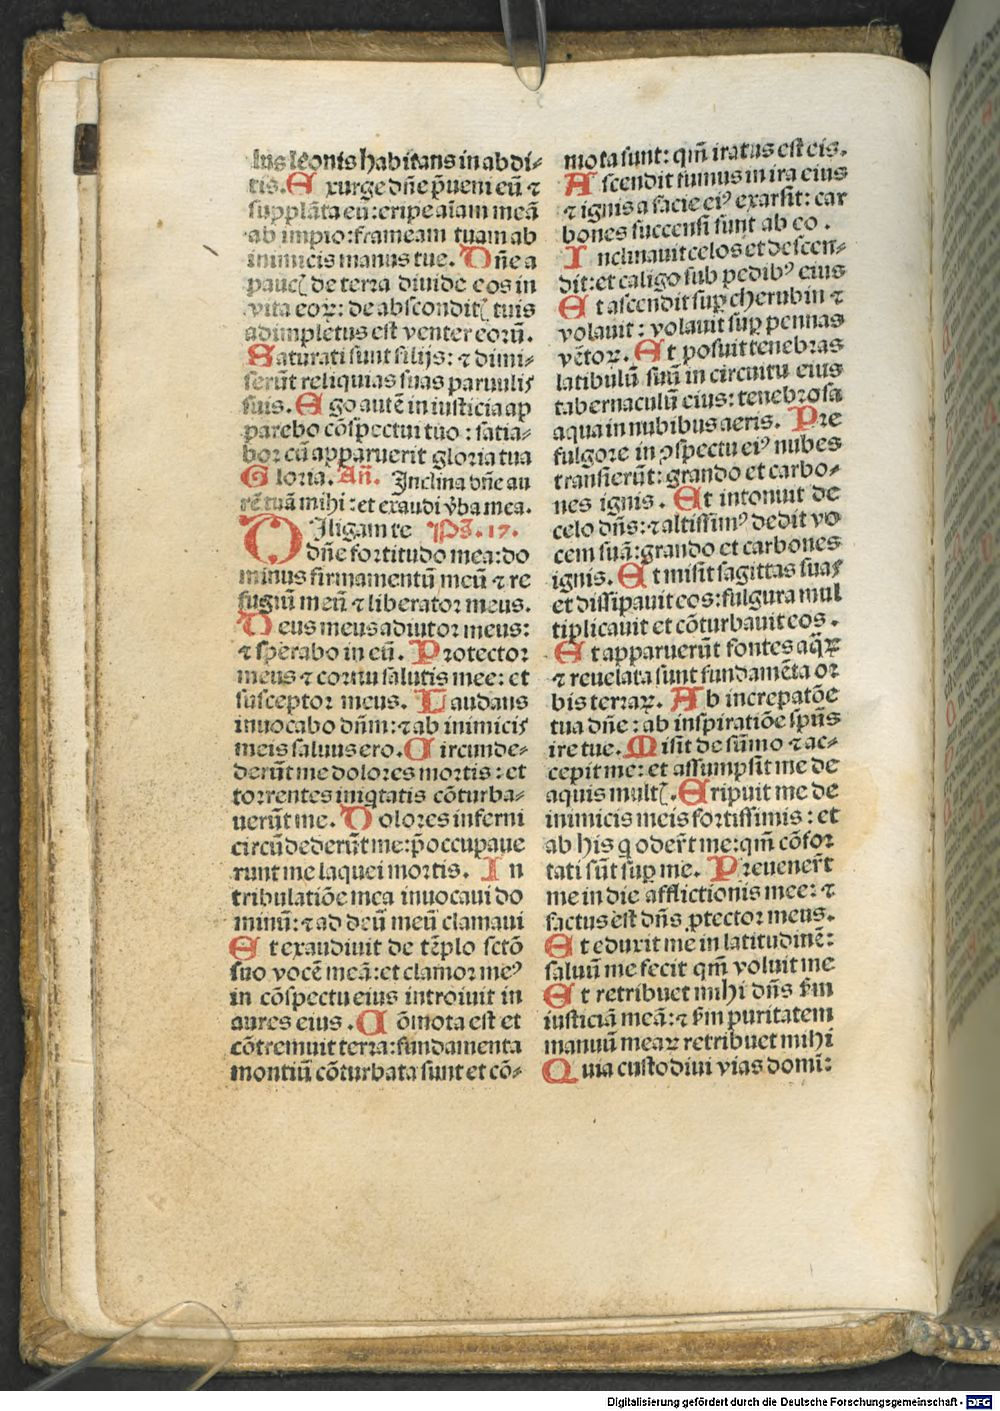 lus leonis habitans in abdi-
tis. Exurge dñe p̃ueni eũ ⁊
supplãta eũ: eripe aĩam meã
ab impio: frameam tuam ab
inimicis manus tue. Dñe a
paucꝭ de terra diuide eos in
vita eoꝝ: de absconditꝭ tuis
adimpletus est venter eorũ.
Saturati sunt filijs: ⁊ dimi-
serũt reliquias suas paruulis
suis. Ego autẽ in iusticia ap
parebo cõspectui tuo: satia-
bor cũ apparuerit gloria tua
Gloria. Añ. Inclina dñe au
rẽ tuã mihi: et exaudi v̾ba mea.
DIligam te Ps̃. 17.
dñe fortitudo mea: do
minus firmamentũ meũ ⁊ re
fugiũ meũ ⁊ liberator meus.
Deus meus adiutor meus:
⁊ sperabo in eũ. Protector
meus ⁊ cornu salutis mee: et
susceptor meus. Laudans
inuocabo dñm: ⁊ ab inimicis
meis saluus ero. Circunde-
derũt me dolores mortis: et
torrentes iniqtatis cõturba-
uerũt me. Dolores inferni
circũdederũt me: p̃occupaue
runt me laquei mortis. In
tribulatiõe mea inuocaui do
minũ: ⁊ ad deũ meũ clamaui
Et exaudiuit de tẽplo sctõ
suo vocẽ meã: et clamor meꝰ
in cõspectu eius introiuit in
aures eius. Cõmota est et
cõtremuit terra: fundamenta
montiũ cõturbata sunt et cõ-
mota sunt: qm̃ iratus est eis.
Ascendit fumus in ira eius
⁊ ignis a facie eiꝰ exarsit: car
bones succensi sunt ab eo.
Inclinauit celos et descen-
dit: et caligo sub pedibꝰ eius
Et ascendit suꝑ cherubin ⁊
volauit: volauit suꝑ pennas
vẽtoꝝ. Et posuit tenebras
latibulũ suũ in circuitu eius
tabernaculũ eius: tenebrosa
aqua in nubibus aeris. Pre
fulgore in ꝯspectu eiꝰ nubes
transierũt: grando et carbo-
nes ignis. Et intonuit de
celo dñs: ⁊ altissimꝰ dedit vo
cem suã: grando et carbones
ignis. Et misit sagittas suas
et dissipauit eos: fulgura mul
tiplicauit et cõturbauit eos.
Et apparuerũt fontes aq̃ꝝ
⁊ reuelata sunt fundamẽta or
bis terraꝝ. Ab increpatõe
tua dñe: ab inspiratiõe spũs
ire tue. Misit de sũmo ⁊ ac-
cepit me: et assumpsit me de
aquis multꝭ. Eripuit me de
inimicis meis fortissimis: et
ab his q oder̃t me: qm̃ cõfor
tati sũt suꝑ me. Preuener̃t
me in die afflictionis mee: ⁊
factus est dñs ꝓtector meus.
Et eduxit me in latitudinẽ:
saluũ me fecit qm̃ voluit me
Et retribuet mihi dñs s̃m
iusticiã meã: ⁊ s̃m puritatem
manuũ meaꝝ retribuet mihi
Quia custodiui vias domi:
Digitalisierung gefördert durch die Deutsche Forschungsgemeinschaft - DFG